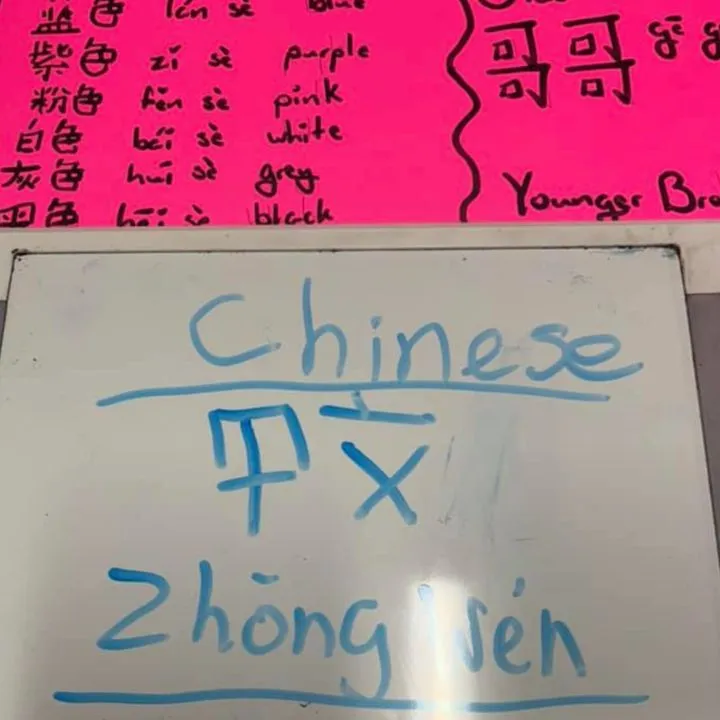 蓝色 lán sè blue
紫色 zǐ sè purple
粉色 fěn sè pink
白色 bái sè white
灰色 huī sè grey
黑色 hēi sè black
哥哥 gē
Younger Bro
Chinese
中文
Zhōng wén